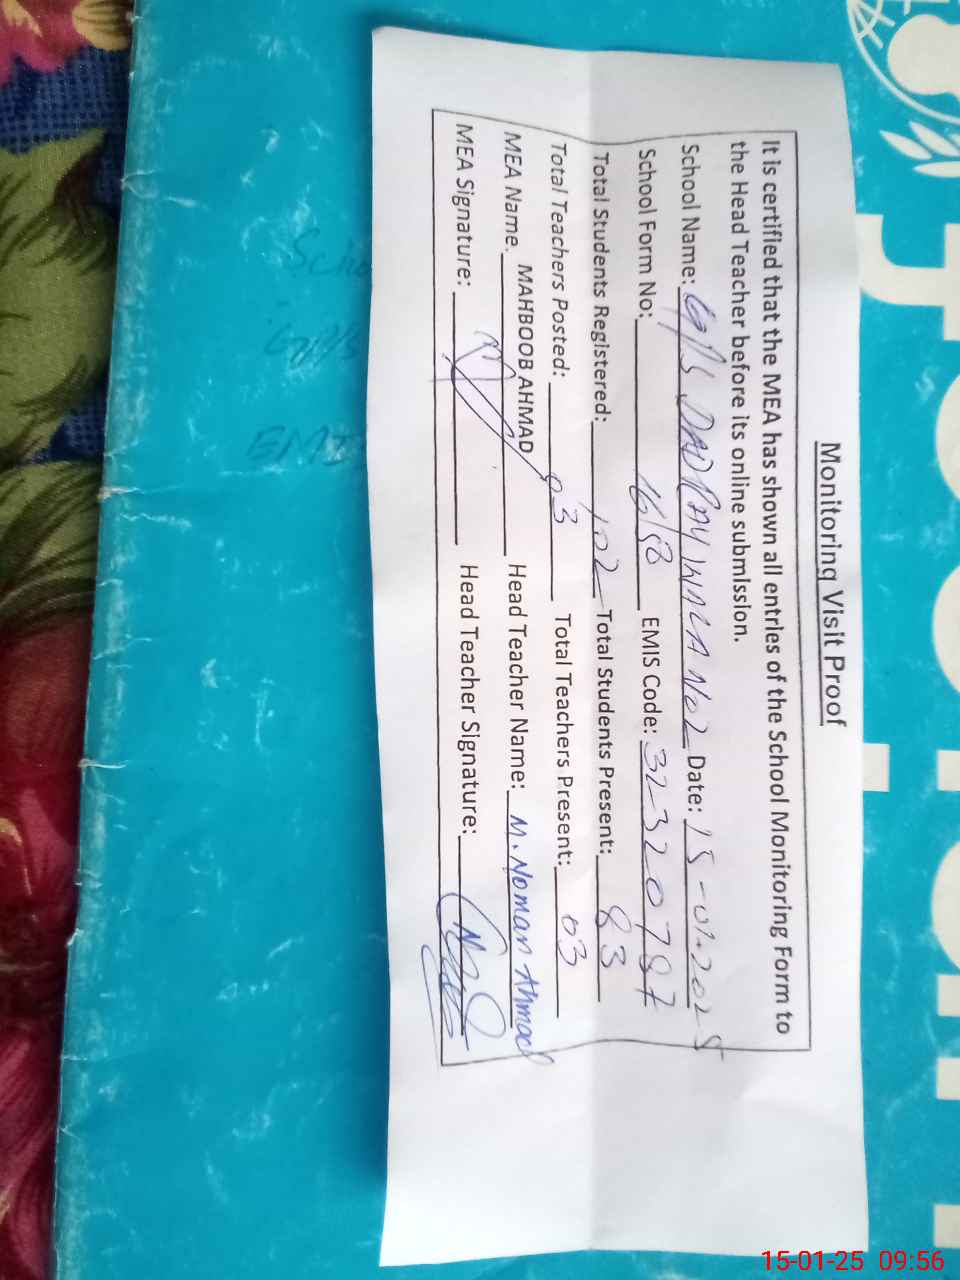 Monitoring Visit Proof
It is certified that the MEA has shown all entries of the School Monitoring Form to
the Head Teacher before its online submission.
School Name: G/P/S DAD PAY WALA No 2 Date: 15-01-2025
School Form No: 16/58 EMIS Code: 32320787
Total Students Registered: 102 Total Students Present: 83
Total Teachers Posted: 03 Total Teachers Present: 03
MEA Name. MAHBOOB AHMAD Head Teacher Name: M. Noman Ahmad
MEA Signature: Head Teacher Signature:
Scho
EMIS
15-01-25 09:56